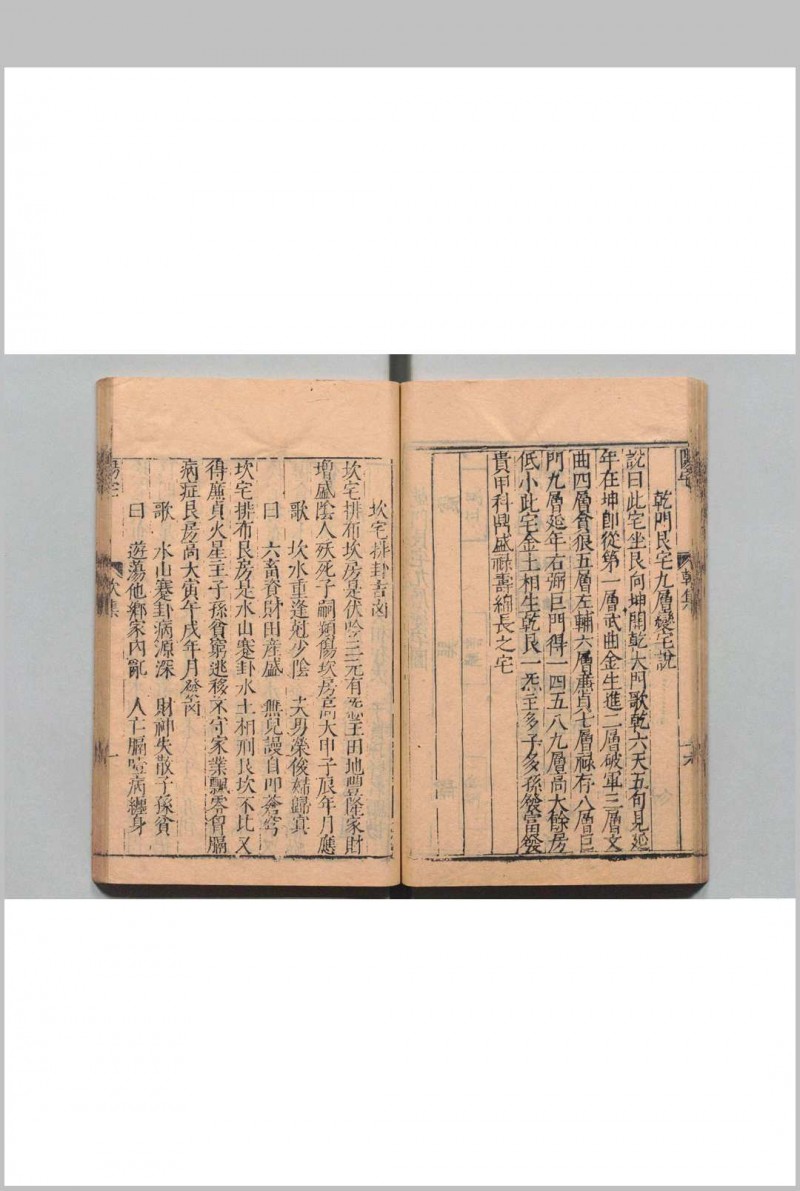 乾門艮宅九層變宅說
說曰此宅坐艮向坤開乾大門歌乾六天五句見延
年在坤卽從第一層武曲金生進二層破軍三層文
曲四層貪狼五層左輔六層廉貞七層祿存八層巨
門九層延年右弼巨門得一四五八九層高大餘房
低小此宅金土相生乾艮一炁主多子多孫發富發
貴甲科鼎盛祿壽緜長之宅
坎宅排卦吉凶
坎宅排布坎房是伏吟三元有炁主田地豐隆家財
增盛陰人殀死子嗣頻傷坎房高大申子辰年月應
歌　坎水重逢尅少陰　夫男榮俊婦歸真
曰　六畜資財田產盛　無兒謾自叩蒼穹
坎宅排布艮房是水山蹇卦水土相刑艮坎不比又
得廉貞火星主子孫貧窮逃移不守家業飄零曾膈
病症艮房高大寅午戌年月發凶
歌　水山蹇卦病源深　財神失散子孫貧
曰　遊蕩他鄉家內亂　人亡膈噎病纏身
乾集
坎集
一